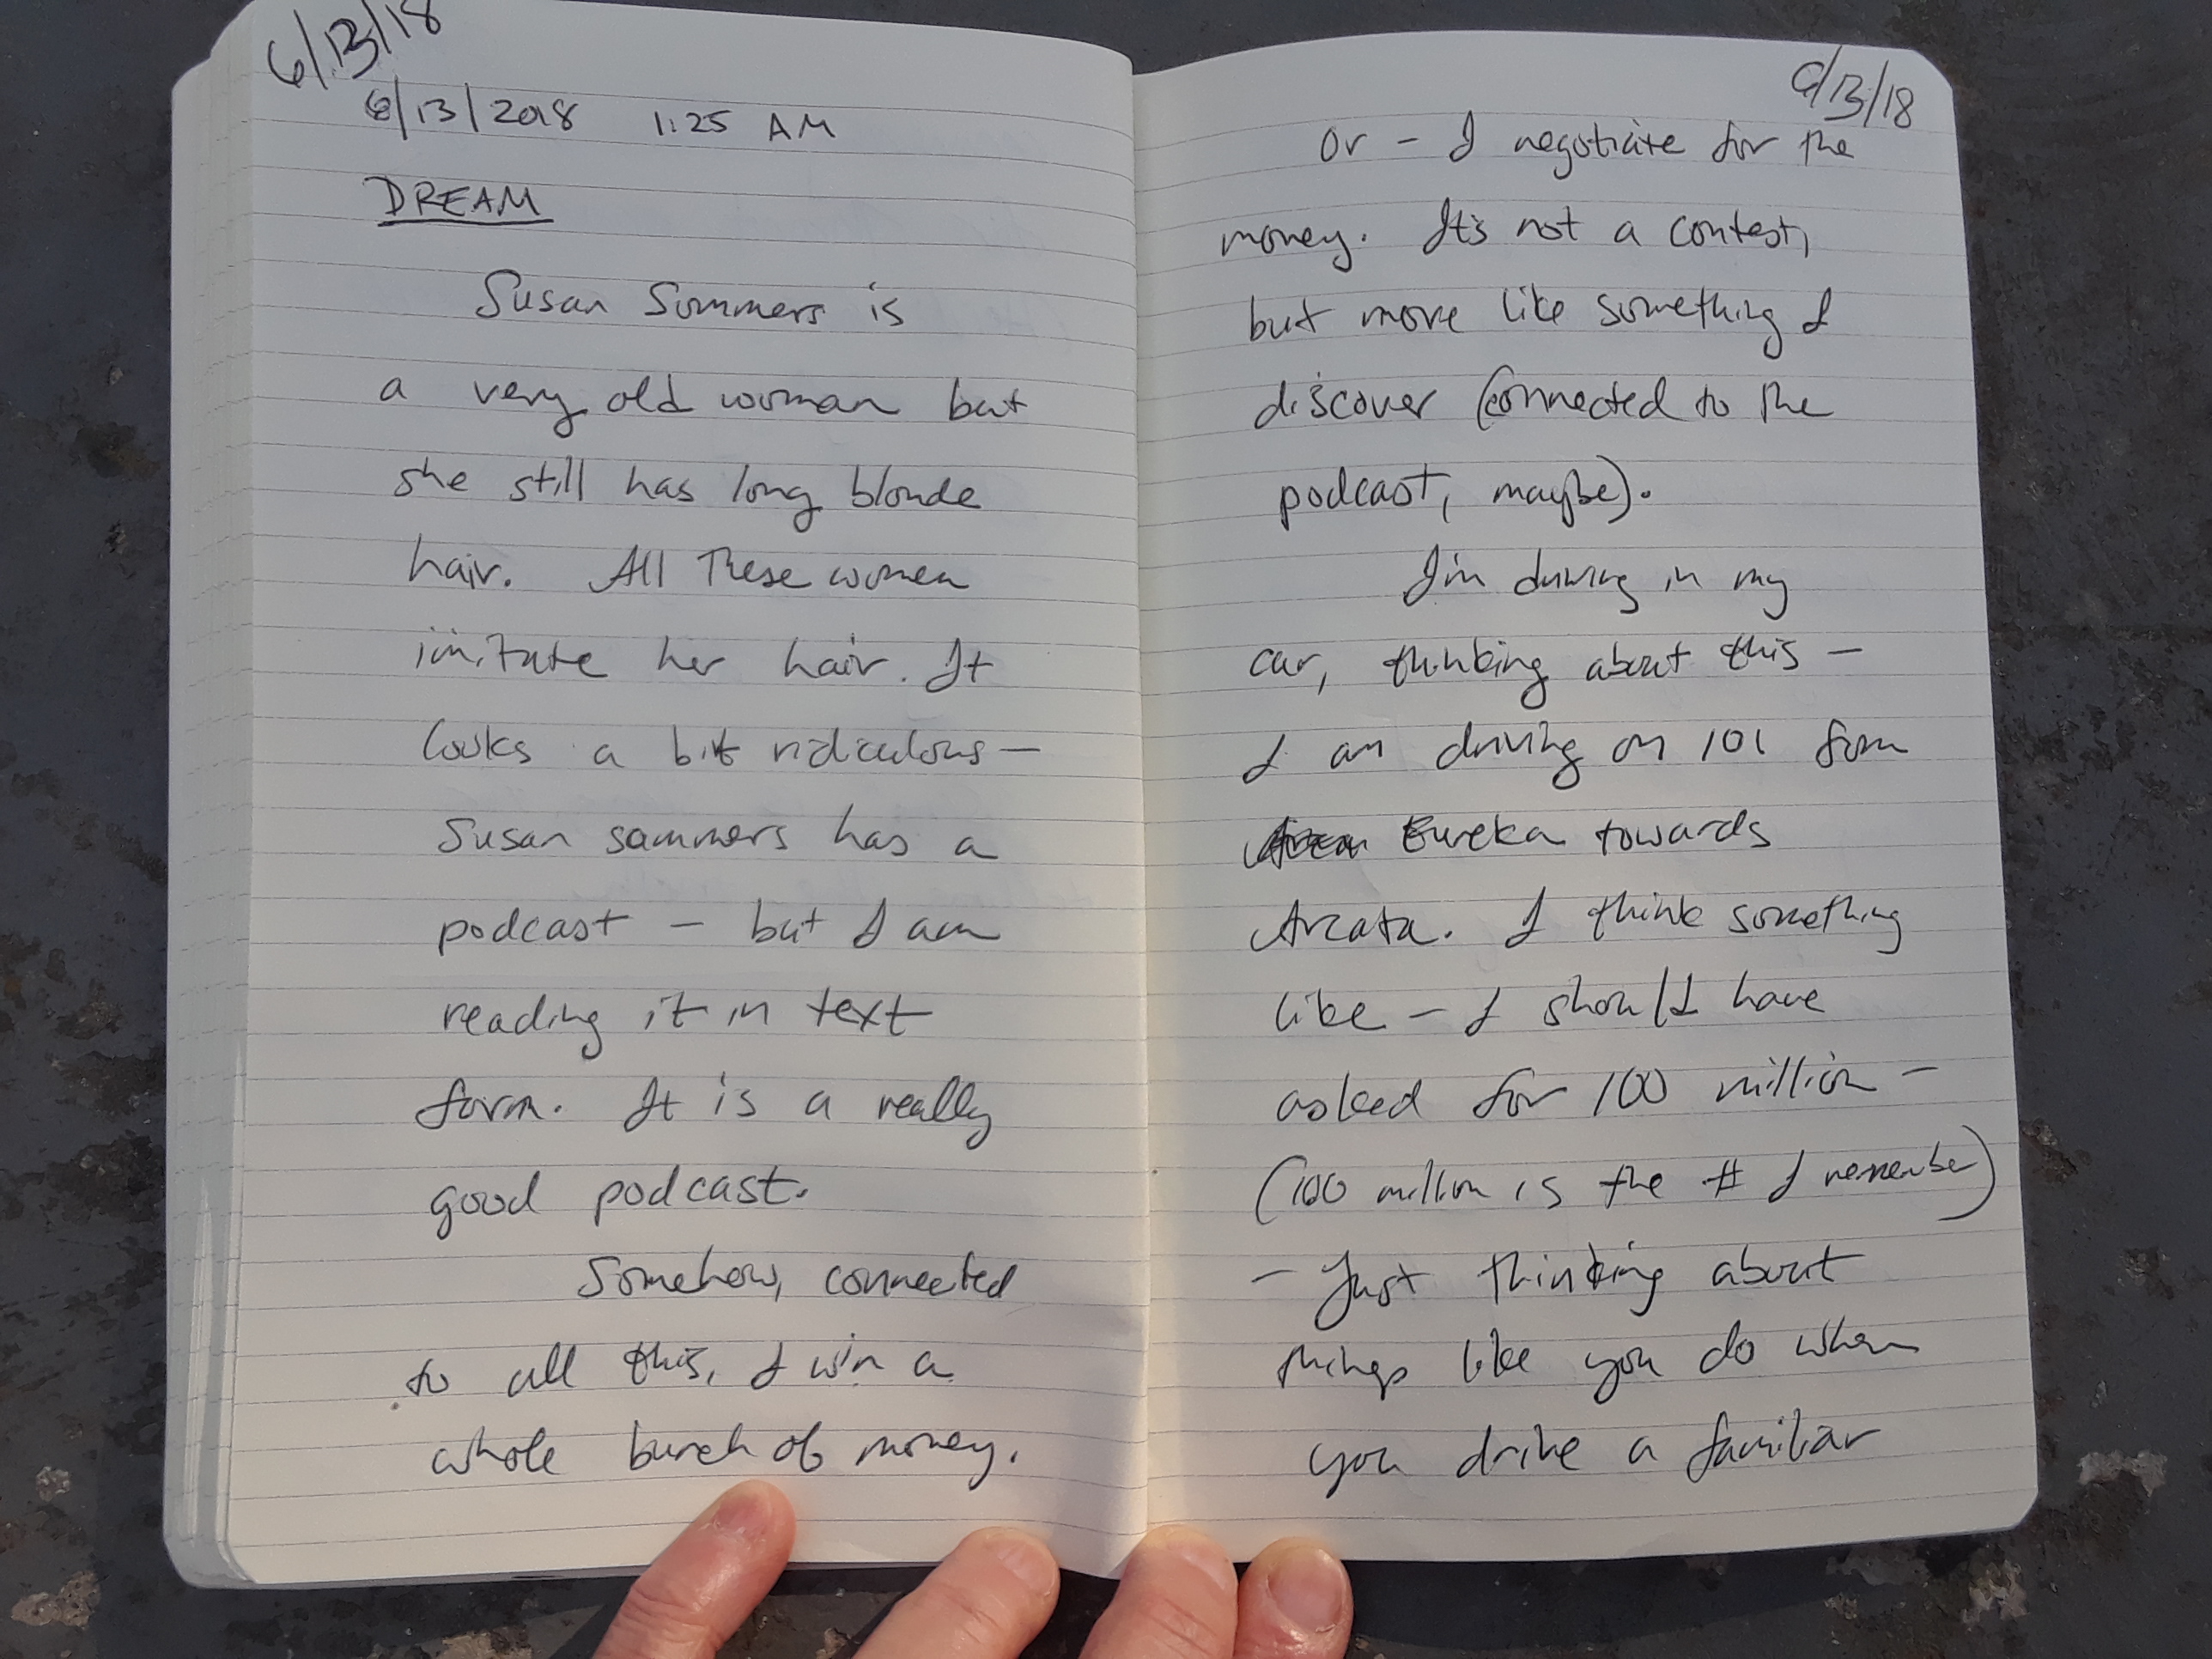 6/13/18
6/13/2018 1:25 AM
DREAM
Susan Sommers is
a very old woman but
she still has long blonde
hair. All these women
imitate her hair. It
looks a bit ridiculous—
Susan sammers has a
podcast – but I am
reading it in text
form. It is a really
good podcast.
Somehow, connected
to all this, I win a
whole bunch of money.
6/13/18
Or – I negotiate for the
money. It's not a contest,
but more like something I
discover (connected to the
podcast, maybe).
I'm driving in my
car, thinking about this –
I am driving on 101 from
Eureka towards
Arcata. I think something
like – I should have
asked for 100 million –
(100 million is the # I remember)
– Just thinking about
things like you do when
you drive a familiar